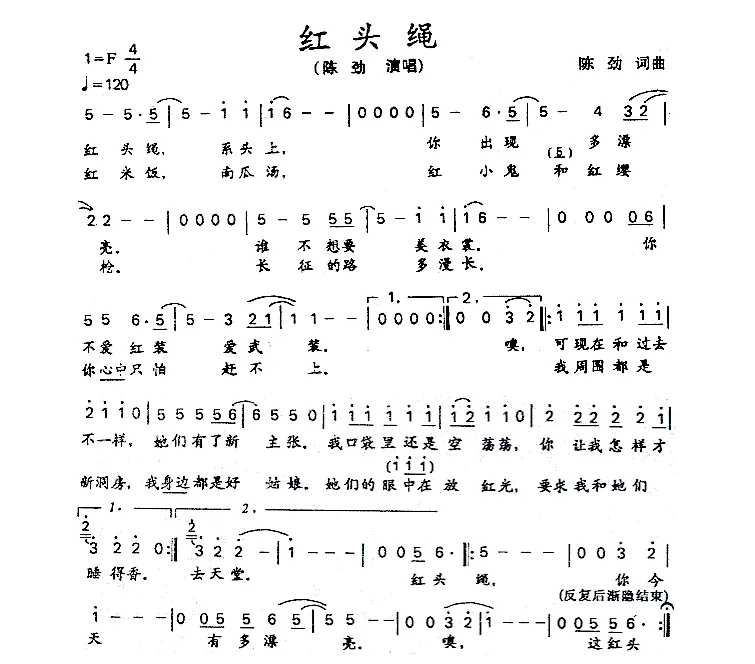 红头绳
1=F 4/4
(陈劲 演唱)
陈劲 词曲
♩=120
5 - 5·5 | 5 - i i | i 6 - - | 0 0 0 0 | 5 - 6·5 | 5 - 4 3 2 |
红 头 绳, 系 头 上, 你 出 现 多 漂
(5)
红 米 饭, 南 瓜 汤, 红 小 鬼 和 红 缨
2 2 - - | 0 0 0 0 | 5 - 5 5 5 | 5 - i i | i 6 - - | 0 0 0 0 6 |
亮。 谁 不 想 要 美 衣 裳。 你
枪。 长 征 的 路 多 漫 长。
1. 2.
5 5 6·5 | 5 - 3 2 1 | 1 1 - - | 0 0 0 0 :| 0 0 3 2 |: i i i i i i |
不 爱 红 装 爱 武 装。 噢, 可 现 在 和 过 去
你 心 中 只 怕 赶 不 上。 我 周 围 都 是
2 i i 0 | 5 5 5 5 5 6 | 6 5 5 0 | i i i i i i i | i 2 i i 0 | 2 2 2 2 2 i |
不 一 样, 她 们 有 了 新 主 张。 我 口 袋 里 还 是 空 荡 荡, 你 让 我 怎 样 才
(i i i)
新 洞 房, 我 身 边 都 是 好 姑 娘。 她 们 的 眼 中 在 放 红 光, 要 求 我 和 她 们
1. 2.
3 2 2 0 :| 3 2 2 - | i - - - | 0 0 5 6· |: 5 - - - | 0 0 3 2 |
睡 得 香。 去 天 堂。 红 头 绳, 你 今
(反复后渐隐结束)
i - - - | 0 0 5 5 5 6 5 | 5 i i - - | 0 0 3 2 | i - - - | 0 0 5 5 6· :|
天 有 多 漂 亮。 噢, 这 红 头